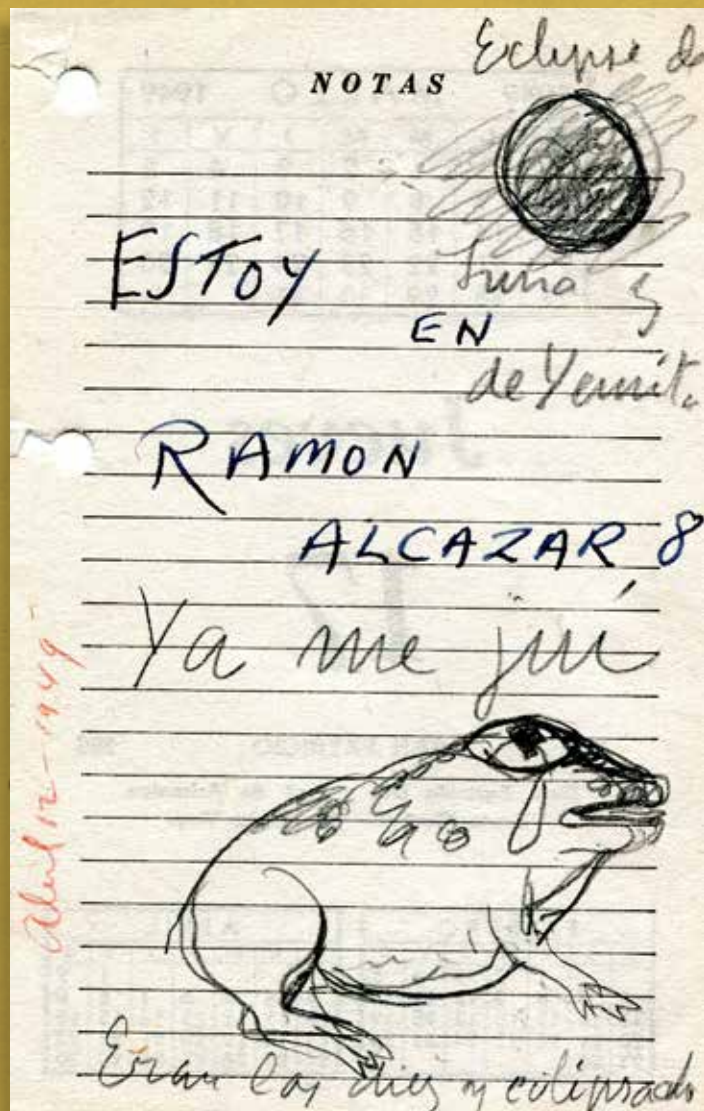 NOTAS
Eclipse de
Luna y
de Yemita
ESTOY
EN
RAMON
ALCAZAR 8
Ya me juí
Abril 12-1949-
Eran las diez y eclipsado